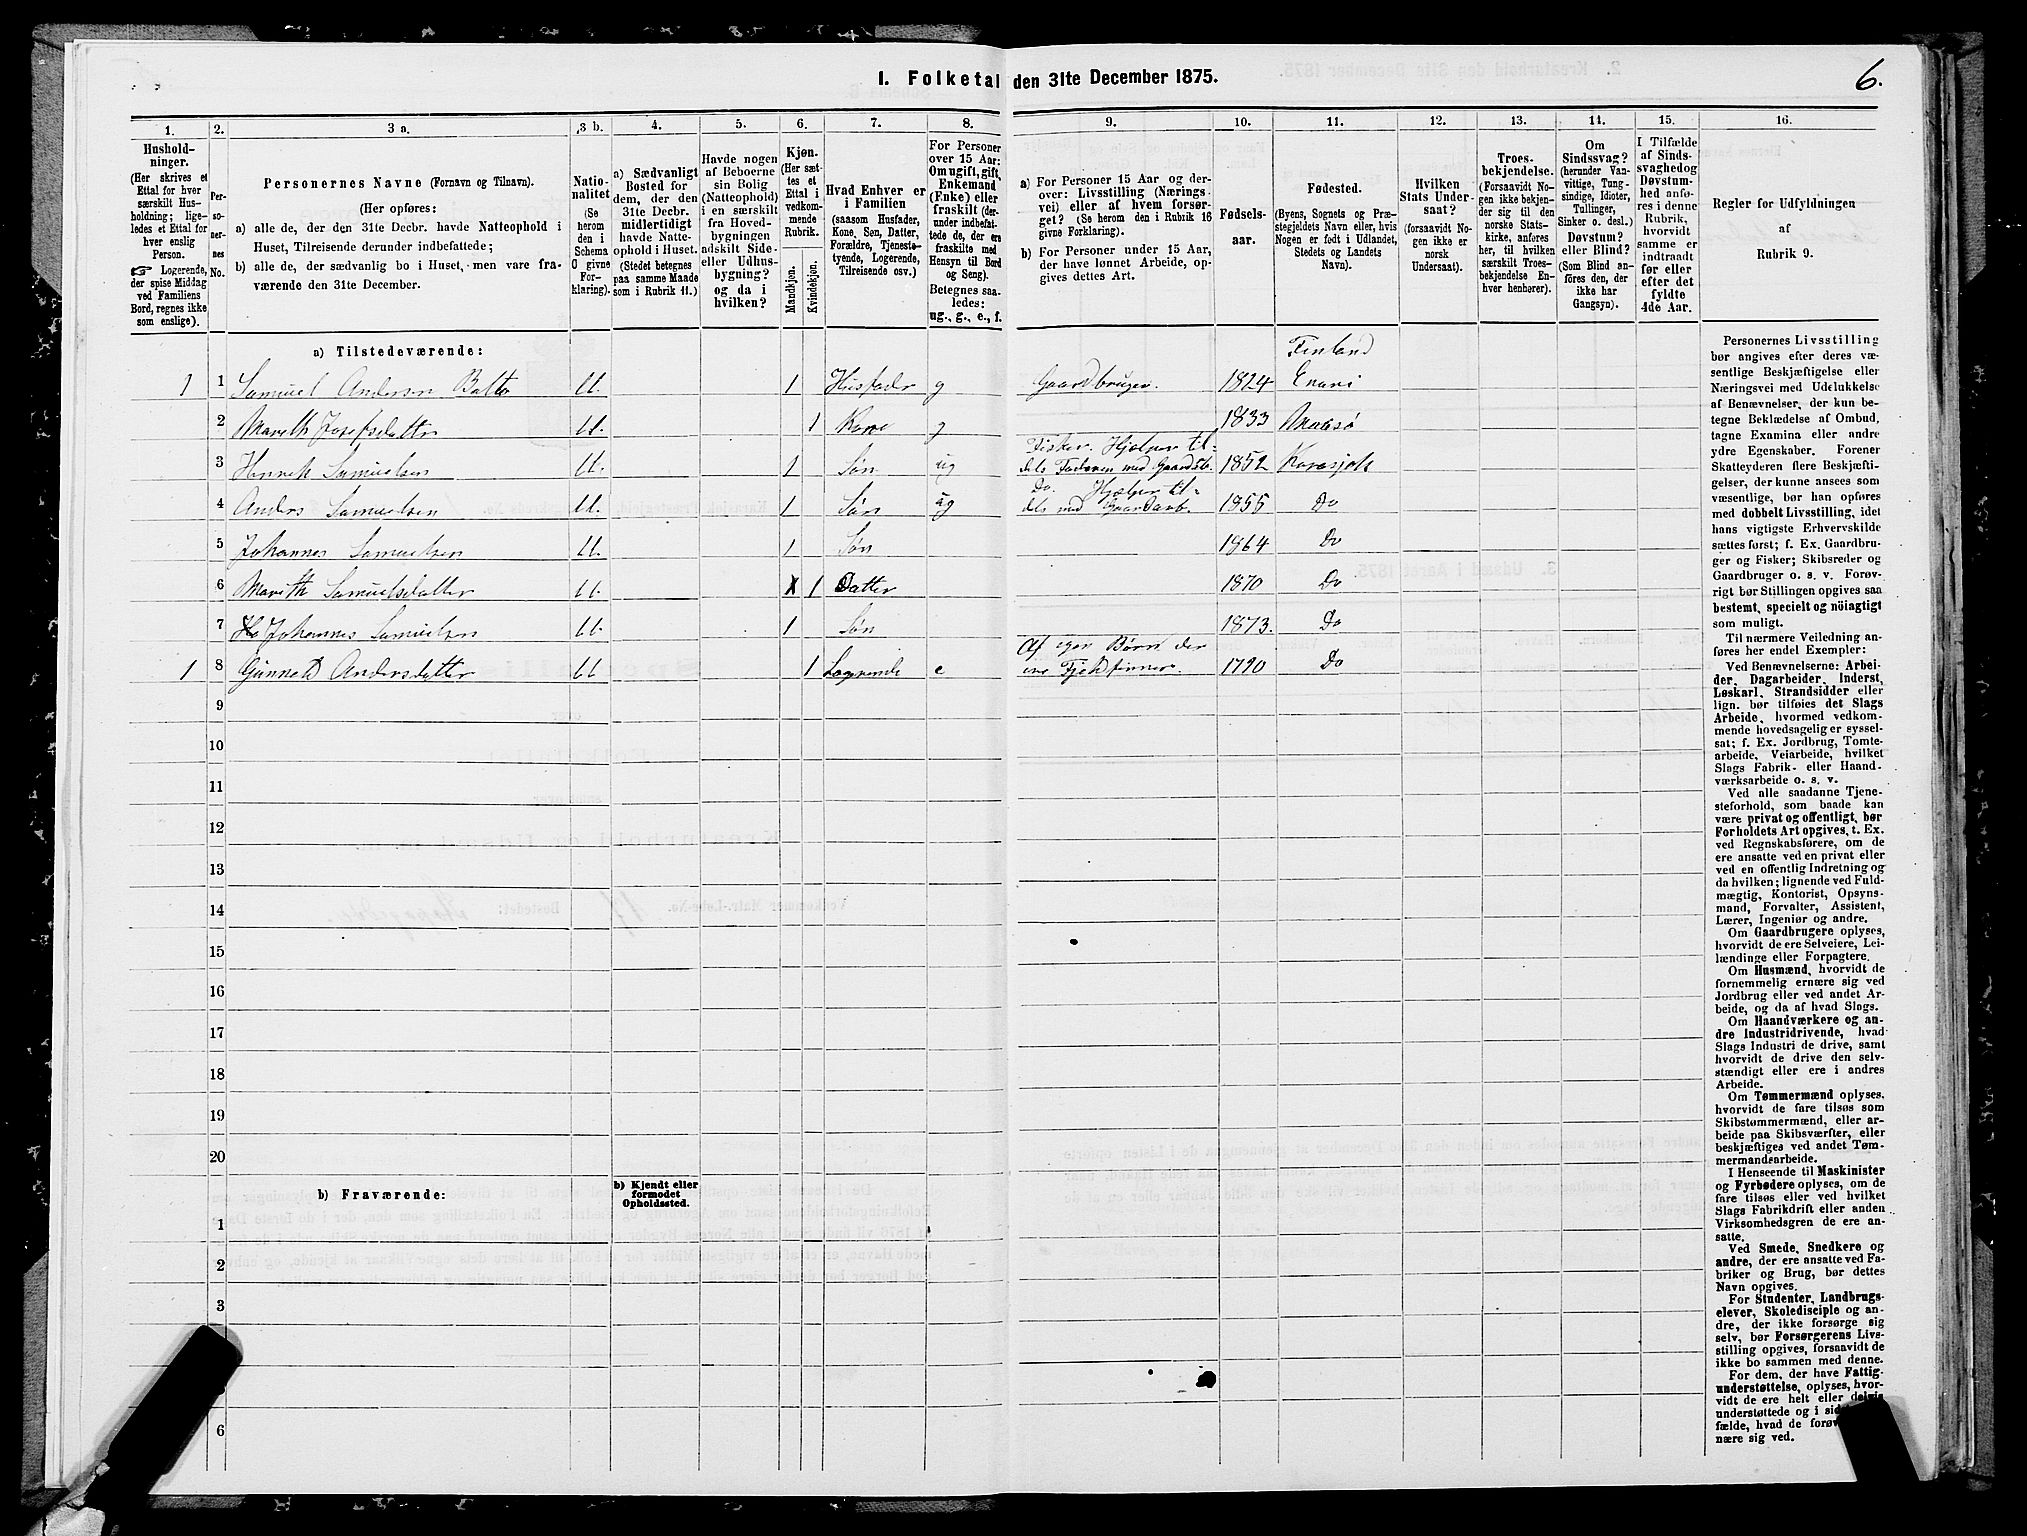 1. Folketal den 31te December 1875.
6.
1.
Hushold-
ninger.
(Her skrives et
Ettal for hver
særskilt Hus-
holdning; lige-
ledes et Ettal for
hver enslig
Person.
☞ Logerende,
der spise Middag
ved Familiens
Bord, regnes ikke
som enslige).
2.
Per-
so-
ner-
nes
No.
3 a.
Personernes Navne (Fornavn og Tilnavn).
(Her opføres:
a) alle de, der den 31te Decbr. havde Natteophold i
Huset, Tilreisende derunder indbefattede;
b) alle de, der sædvanlig bo i Huset, men vare fra-
værende den 31te December.
3 b.
Natio-
nalitet
(Se
herom
den i
Schema
O givne
For-
klaring).
4.
a) Sædvanligt
Bosted for
dem, der den
31te Decbr.
midlertidigt
havde Natte-
ophold i Huset.
(Stedet betegnes
paa samme Maade
som i Rubrik 11.)
5.
Havde nogen
af Beboerne
sin Bolig
(Natteophold)
i en særskilt
fra Hoved-
bygningen
adskilt Side-
eller Udhus-
bygning?
og da i
hvilken?
6.
Kjøn.
(Her sæt-
tes et
Ettal i
vedkom-
mende
Rubrik.
Mandkjøn.
Kvindekjøn.
7.
Hvad Enhver er
i Familien
(saasom Husfader,
Kone, Søn, Datter,
Forældre, Tjeneste-
tyende, Logerende,
Tilreisende osv.)
8.
For Personer
over 15 Aar:
Om ugift, gift,
Enkemand
(Enke) eller
fraskilt (der-
under indbefat-
tede de, der ere
fraskilte med
Hensyn til Bord
og Seng).
Betegnes saa-
ledes:
ug., g., e., f.
9.
a) For Personer 15 Aar og der-
over: Livsstilling (Nærings-
vei) eller af hvem forsør-
get? (Se herom den i Rubrik 16
givne Forklaring).
b) For Personer under 15 Aar,
der have lønnet Arbeide, op-
gives dettes Art.
10.
Fødsels-
aar.
11.
Fødested.
(Byens, Sognets og Præ-
stegjeldets Navn eller, hvis
Nogen er født i Udlandet,
Stedets og Landets
Navn).
12.
Hvilken
Stats Under-
saat?
(forsaavidt No-
gen ikke er
norsk
Undersaat).
13.
Troes-
bekjendelse.
(Forsaavidt No-
gen ikke bekjen-
der sig til den
norske Stats-
kirke, anføres
her, til hvilken
særskilt Troes-
bekjendelse En-
hver henhører).
14.
Om
Sindssvag?
(herunder Van-
vittige, Tung-
sindige, Idioter,
Tullinger,
Sinker o. desl.)
Døvstum?
eller Blind?
(Som Blind an-
føres den, der
ikke har
Gangsyn).
15.
I Tilfælde
af Sinds-
svaghedog
Døvstum-
hed anfø-
res i denne
Rubrik,
hvorvidt
samme er
indtraadt
før eller
efter det
fyldte
4de Aar.
16.
Regler for Udfyldningen
af
Rubrik 9.
a) Tilstedeværende:
1 1 Samuel Andersen Balto U. 1 Husfader g Gaardbruger. 1824 Finland Enari
2 Mareth Josefsdatter U. 1 Kone g 1833
3 Henrik Samuelsen U. 1 Søn ug Fisker. Hjælper til- dels Faderen med Gaardsb. 1852 Karasjok
4 Anders Samuelsen U. 1 Søn ug Do. Hjælper til- dels med Gaardsarb. 1855 Do
5 Johannes Samuelsen U. 1 Søn 1864 Do
6 Mareth Samuelsdatter U. 1 Datter 1870 Do
7 Johannes Samuelsen U. 1 Søn 1873. Do
1 8 Andersdatter U 1 Logerende e Af egne Børn der ere Fjeldfinner. 1790 Do
9
10
11
12
13
14
15
16
17
18
19
20
b) Fraværende:
b) Kjendt eller
formodet
Opholdssted.
1
2
3
6
Personernes Livsstilling
bør angives efter deres væ-
sentlige Beskjæftigelse eller
Næringsvei med Udelukkelse
af Benævnelser, der kun be-
tegne Beklædelse af Ombud,
tagne Examina eller andre
ydre Egenskaber. Forener
Skatteyderen flere Beskjæfti-
gelser, der kunne ansees som
væsentlige, bør han opføres
med dobbelt Livsstilling, idet
hans vigtigste Erhvervskilde
sættes først; f. Ex. Gaardbru-
ger og Fisker; Skibsreder og
Gaardbruger o. s. v. Forøv-
rigt bør Stillingen opgives saa
bestemt, specielt og nöiagtigt
som muligt.
Til nærmere Veiledning an-
føres her endel Exempler:
Ved Benævnelserne: Arbei-
der, Dagarbeider, Inderst,
Løskarl, Strandsidder eller
lign. bør tilføies det Slags
Arbeide, hvormed vedkom-
mende hovedsagelig er syssel-
sat; f. Ex. Jordbrug, Tomte-
arbeide, Veiarbeide, hvilket
Slags Fabrik- eller Haand-
værksarbeide o. s. v.
Ved alle saadanne Tjene-
steforhold, som baade kan
være privat og offentligt, bør
Forholdets Art opgives, t. Ex.
ved Regnskabsførere, om de
ere ansatte ved en privat eller
ved en offentlig Indretning og
da hvilken; lignende ved Fuld-
mægtig, Kontorist, Opsyns-
mand, Forvalter, Assistent,
Lærer, Ingeniør og andre.
Om Gaardbrugere oplyses,
hvorvidt de ere Selveiere, Lei-
lændinge eller Forpagtere.
Om Husmænd, hvorvidt de
fornemmelig ernære sig ved
Jordbrug eller ved andet Ar-
beide, og da af hvad Slags.
Om Haandværkere og an-
dre Industridrivende, hvad
Slags Industri de drive, samt
hvorvidt de drive den selv-
stændigt eller ere i andres
Arbeide.
Om Tømmermænd oplyses,
hvorvidt de fare tilsøs som
Skibstømmermænd, eller ar-
beide paa Skibsværfter, eller
beskjæftiges ved andet Tøm-
mermandsarbeide.
I Henseende til Maskinister
og Fyrbødere oplyses, om de
fare tilsøs eller ved hvilket
Slags Fabrikdrift eller anden
Virksomhedsgren de ere an-
satte.
Ved Smede, Snedkere og
andre, der ere ansatte ved Fa-
briker og Brug, bør dettes
Navn opgives.
For Studenter, Landbrugs-
elever, Skoledisciple og an-
dre, der ikke forsørge sig
selv, bør Forsørgerens Livs-
stilling opgives, forsaavidt de
ikke bo sammen med denne.
For dem, der have Fattig-
understøttelse, oplyses, hvor-
vidt de ere helt eller delvis
understøttede og i
fælde, hvad de
nære sig ved.